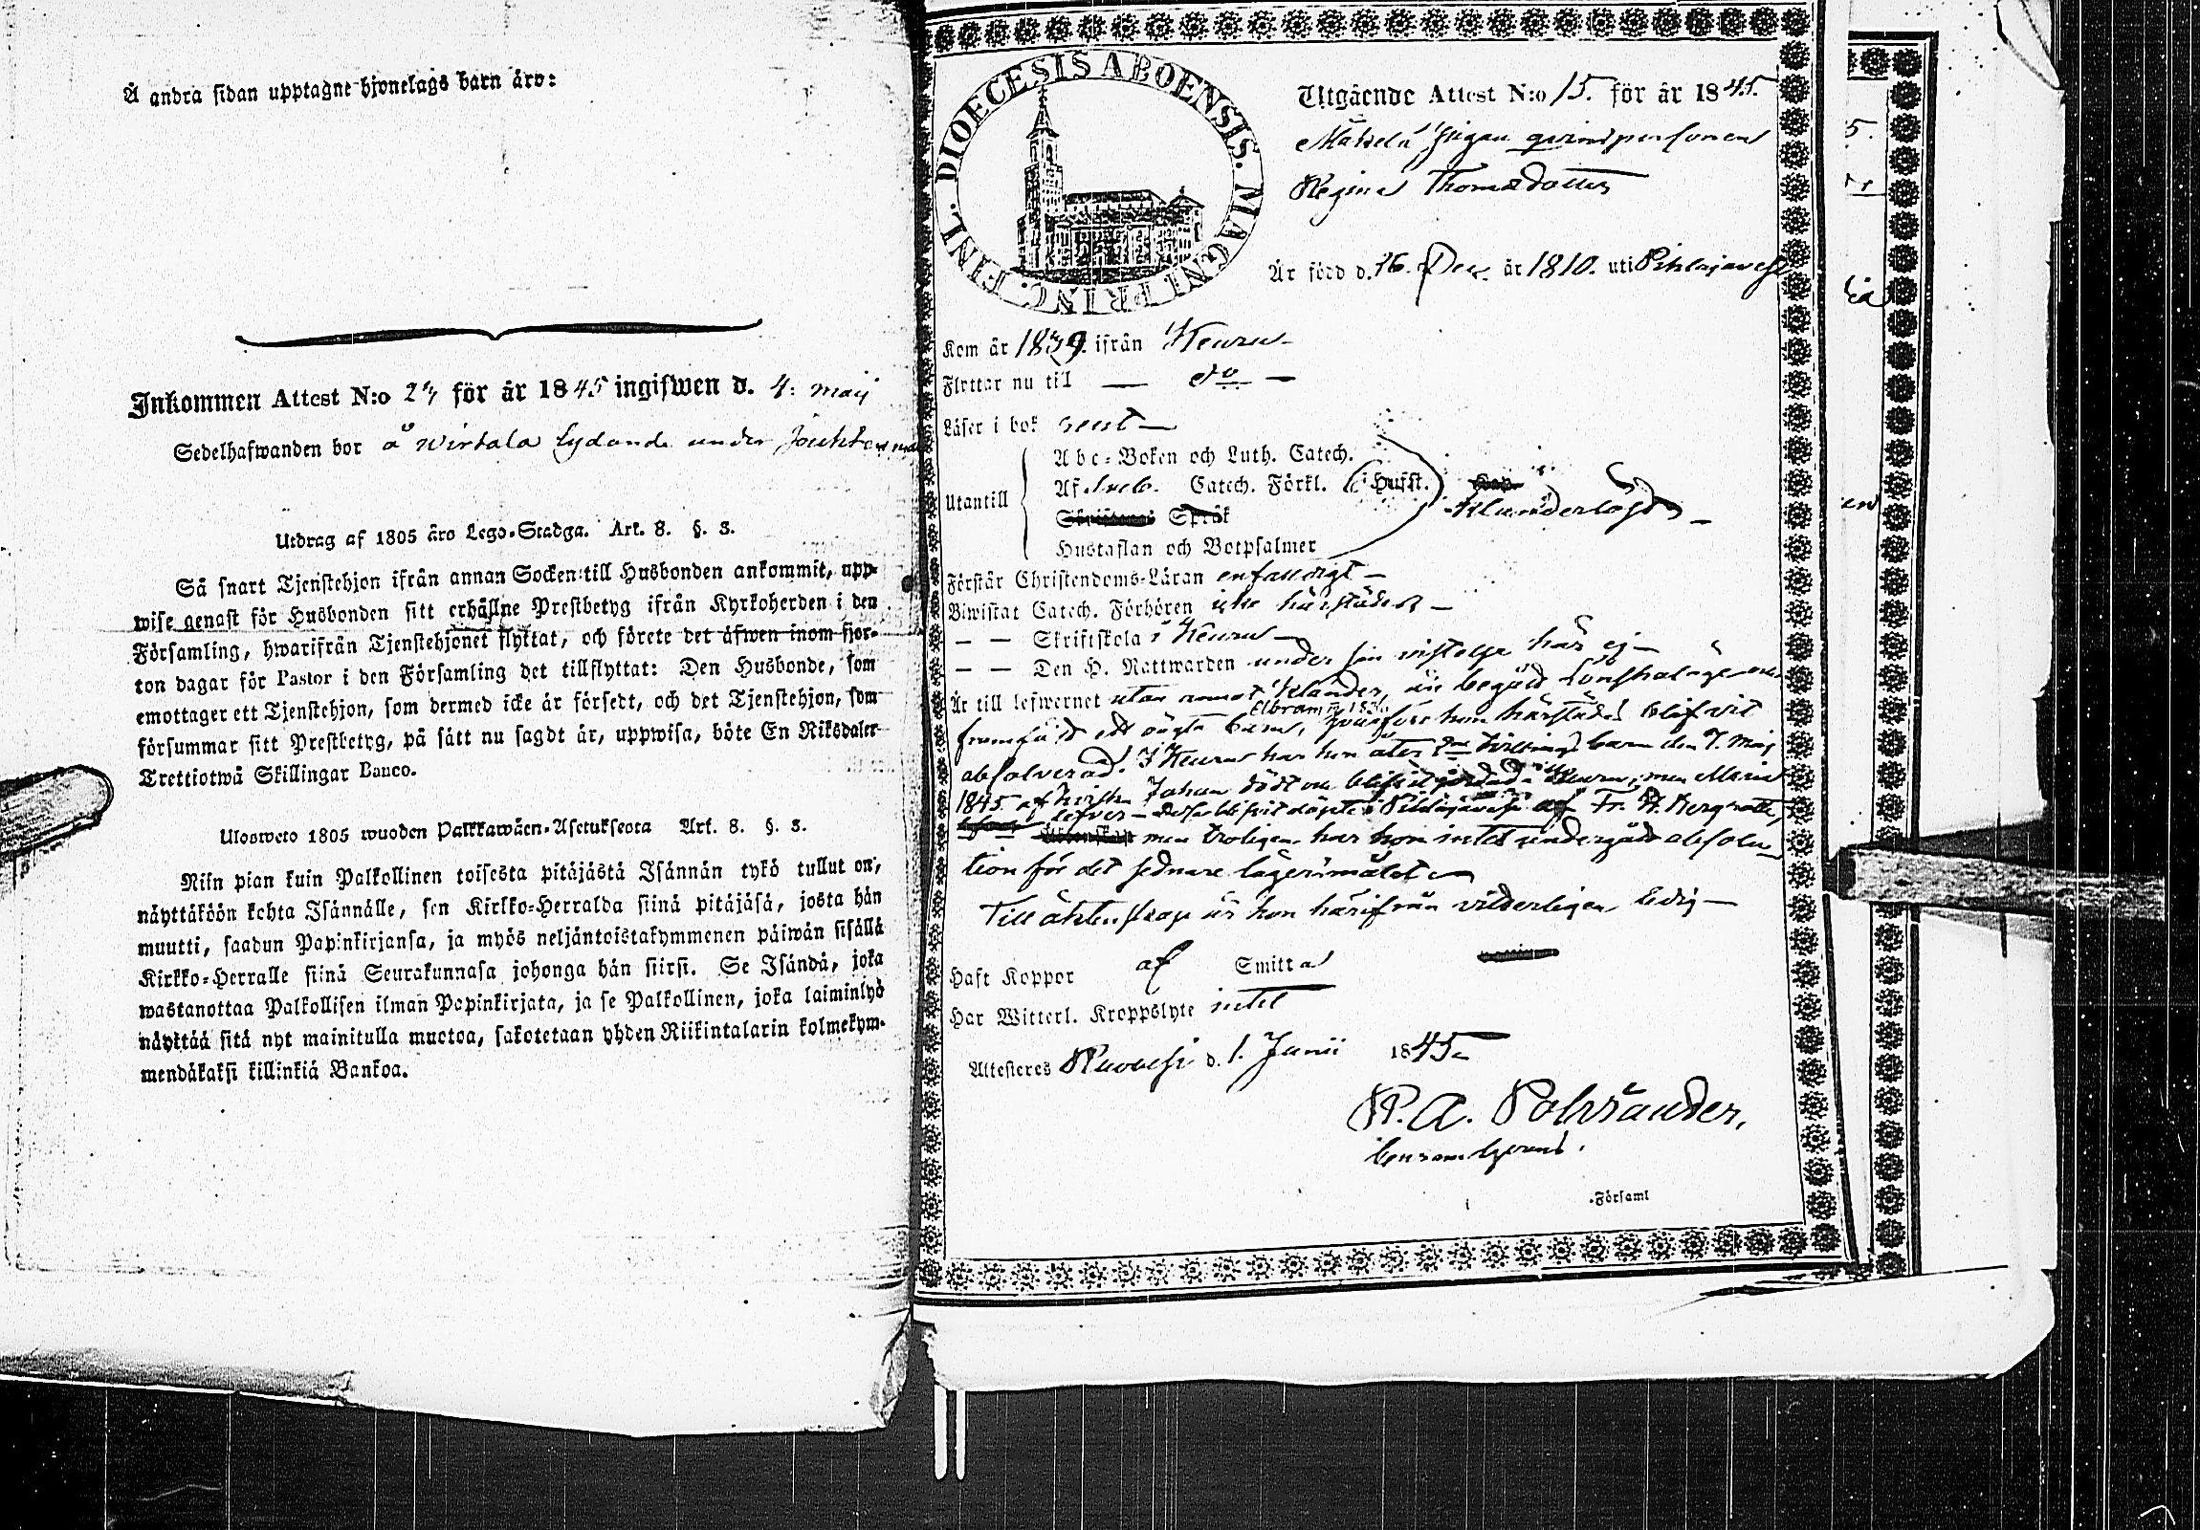 Å andra sidan upptagne hjonelags barn äro:
Inkommen Attest N:o för år 1845 ingifwen d. 4: maij
Sedelhafwanden bor å Wirtala lydande under
Utdrag af 1805 års Lego-Stadga. Art. 8. §. 3.
Så snart Tjenstehjon ifrån annan Socken till Husbonden ankommit, upp-
wise genast för Husbonden sitt erhållne Prestbetyg ifrån Kyrkoherden i den
Församling, hwarifrån Tjenstehjonet flyttat, och förete det äfwen inom fjor-
ton dagar för Pastor i den Församling det tillflyttat: Den Husbonde, som
emottager ett Tjenstehjon, som dermed icke är försedt, och det Tjenstehjon, som
försummar sitt Prestbetyg, på sätt nu sagdt är, uppwisa, böte En Riksdaler
Trettiotwå Skillingar Banco.
Ulosweto 1805 wuoden Palkkawäen-Asetuksesta Art. 8. §. 3.
Niin pian kuin Palkollinen toisesta pitäjästä Isännän tykö tullut on,
näyttäköön kohta Isännälle, sen Kirkko-Herralda siinä pitäjäsä, josta hän
muutti, saadun Papinkirjansa, ja myös neljäntoistakymmenen päiwän sisällä
Kirkko-Herralle siinä Seurakunnasa johonga hän siirsi. Se Isändä, joka
wastanottaa Palkollisen ilman Papinkirjata, ja se Palkollinen, joka laiminlyö
näyttää sitä nyt mainitulla muotoa, sakotetaan yhden Riikintalarin kolmekym-
mendäkaksi killinkiä Bankoa.
DIOECESIS ABOENSIS. MAGNI PRINC. FINL.
Utgående Attest N:o 15. för år 1845.
qvinspersonen
Regina Thomasdotter
Är född d. 16. Dec. år 1810. uti Pihlajavesi
Kom år 1839. ifrån Keuru
Flyttar nu till — do —
Läser i bok rent
Abc-Boken och Luth. Catech.
Utantill Af Sveb. Catech. Förkl. Hufst.
Språk
Hustaflan och Botpsalmer
Förstår Christendoms-Läran enfaldigt
Biwistat Catech. Förhören icke härstädes
— — Skriftskola i Keuru
— — Den H. Nattwarden under sin vistelse här ej
Är till lefwernet utan annat klander, än begådt
framfödt ett oägta barn, hvarföre hon härstädes blifvit
absolverad. I Keuru har hon åter barn den 7. Maj
1845. af hvilka Johan dödt men Maria
lefver
men troligen har hon intet undergått absolu-
tion för det sednare lägersmålet
Till ächtenskap är hon härifrån vitterligen ledig
Haft Koppor af Smitta
Har Witterl. Kroppslyte intet
Attesteres Ruovesi d. 1. Junii 1845
Församl